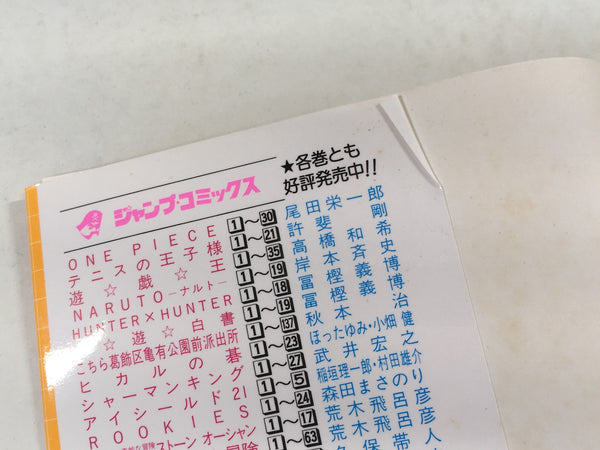 ★各巻とも
好評発売中!!
ジャンプ・コミックス
ONE PIECE 1～30 尾田栄一郎
テニスの王子様 1～21 許斐剛
遊☆戯☆王 1～35 高橋和希
NARUTO—ナルト— 1～19 岸本斉史
HUNTER×HUNTER 1～18 冨樫義博
☆遊☆白書 1～19 冨樫義博
こちら葛飾区亀有公園前派出所 1～137 秋本治
ヒカルの碁 1～23 ほったゆみ・小畑健
シャーマンキング 1～27 武井宏之
アイシールド21 1～5 稲垣理一郎・村田雄介
ROOKIES 1～24 森田まさのり
ストーンオーシャン 1～17 荒木飛呂彦
冒険 1～63 荒木飛呂彦
久保帯人